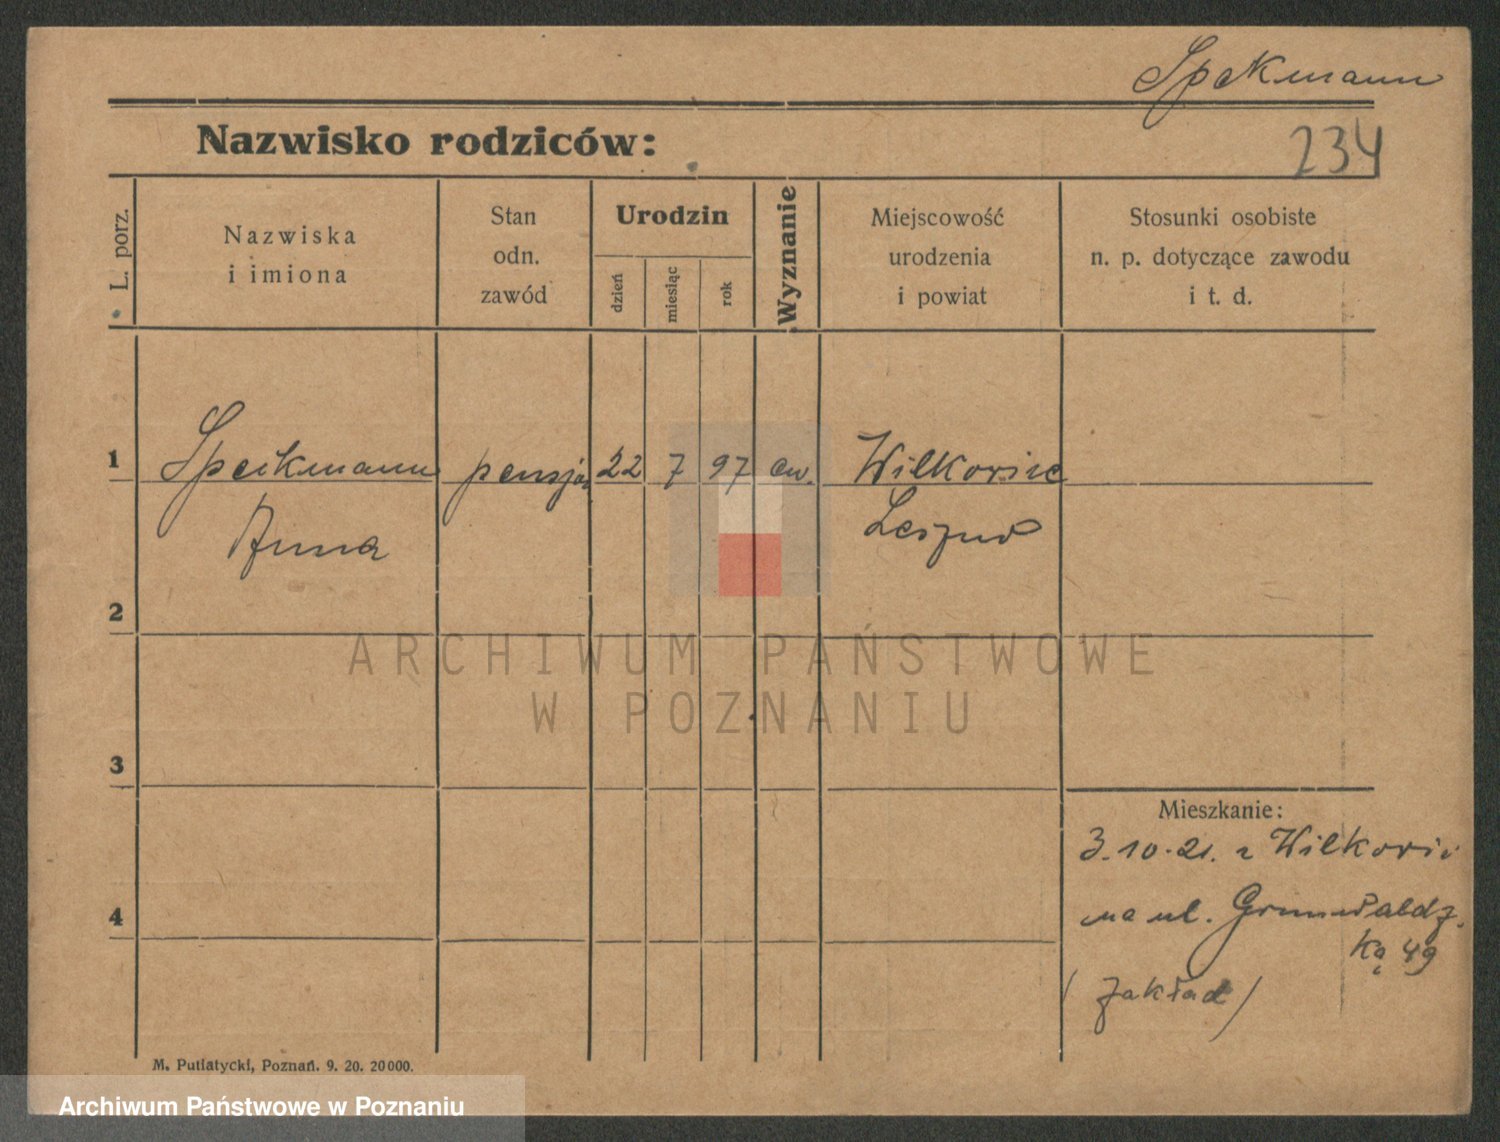 Spekmann
Nazwisko rodziców:
234
L. porz.
Nazwiska
i imiona
Stan
odn.
zawód
Urodzin
dzień
miesiąc
rok
Wyznanie
Miejscowość
urodzenia
i powiat
Stosunki osobiste
n. p. dotyczące zawodu
i t. d.
1
Speikmann
pensjon
22
7
97
ew.
Wilkowice
Anna
Leszno
2
ARCHIWUM PAŃSTWOWE
W POZNANIU
3
Mieszkanie:
3.10.21. z Wilkowic
4
na ul. Grunwaldz.
ką 49
/ zakład /
M. Putiatycki, Poznań. 9. 20. 20000.
Archiwum Państwowe w Poznaniu